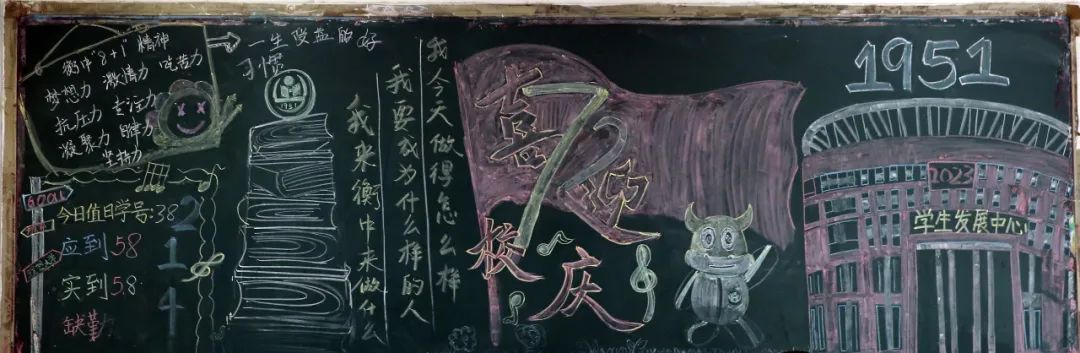 衡中"8+1"精神
梦想力 激情力 吃苦力
抗压力 专注力
凝聚力
坚持力
GOAL
今日值日学号:38
应到58
实到58
缺勤
2
1
4
一生受益的好
习惯
1951
我来衡中来做什么
我要成为什么样的人
我今天做得怎么样
喜迎
72
校庆
1951
2023
学生发展中心